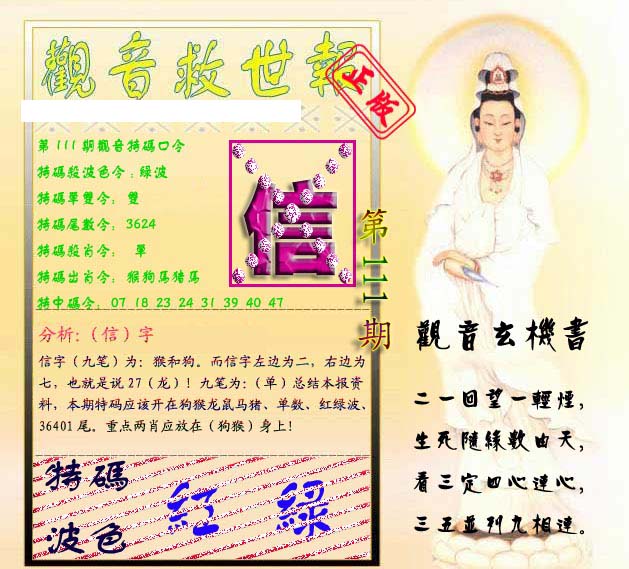 觀音救世報
正版
第111期觀音特碼口令
特碼殺波色令:綠波
特碼單雙令: 雙
特碼尾數令: 3624
特碼殺肖令: 單
特碼出肖令: 猴狗馬猪馬
特中碼令: 07 18 23 24 31 39 40 47
信
第111期
分析:（信）字
信字（九笔）为：猴和狗。而信字左边为二，右边为
七，也就是说27（龙）！九笔为：（单）总结本报资
料，本期特码应该开在狗猴龙鼠马猪、单数、红绿波、
36401尾。重点两肖应放在（狗猴）身上！
特碼
波色
紅 綠
觀音玄機書
二一回望一輕煙，
生死隨緣數由天，
看三定四心連心，
三五並列九相連。